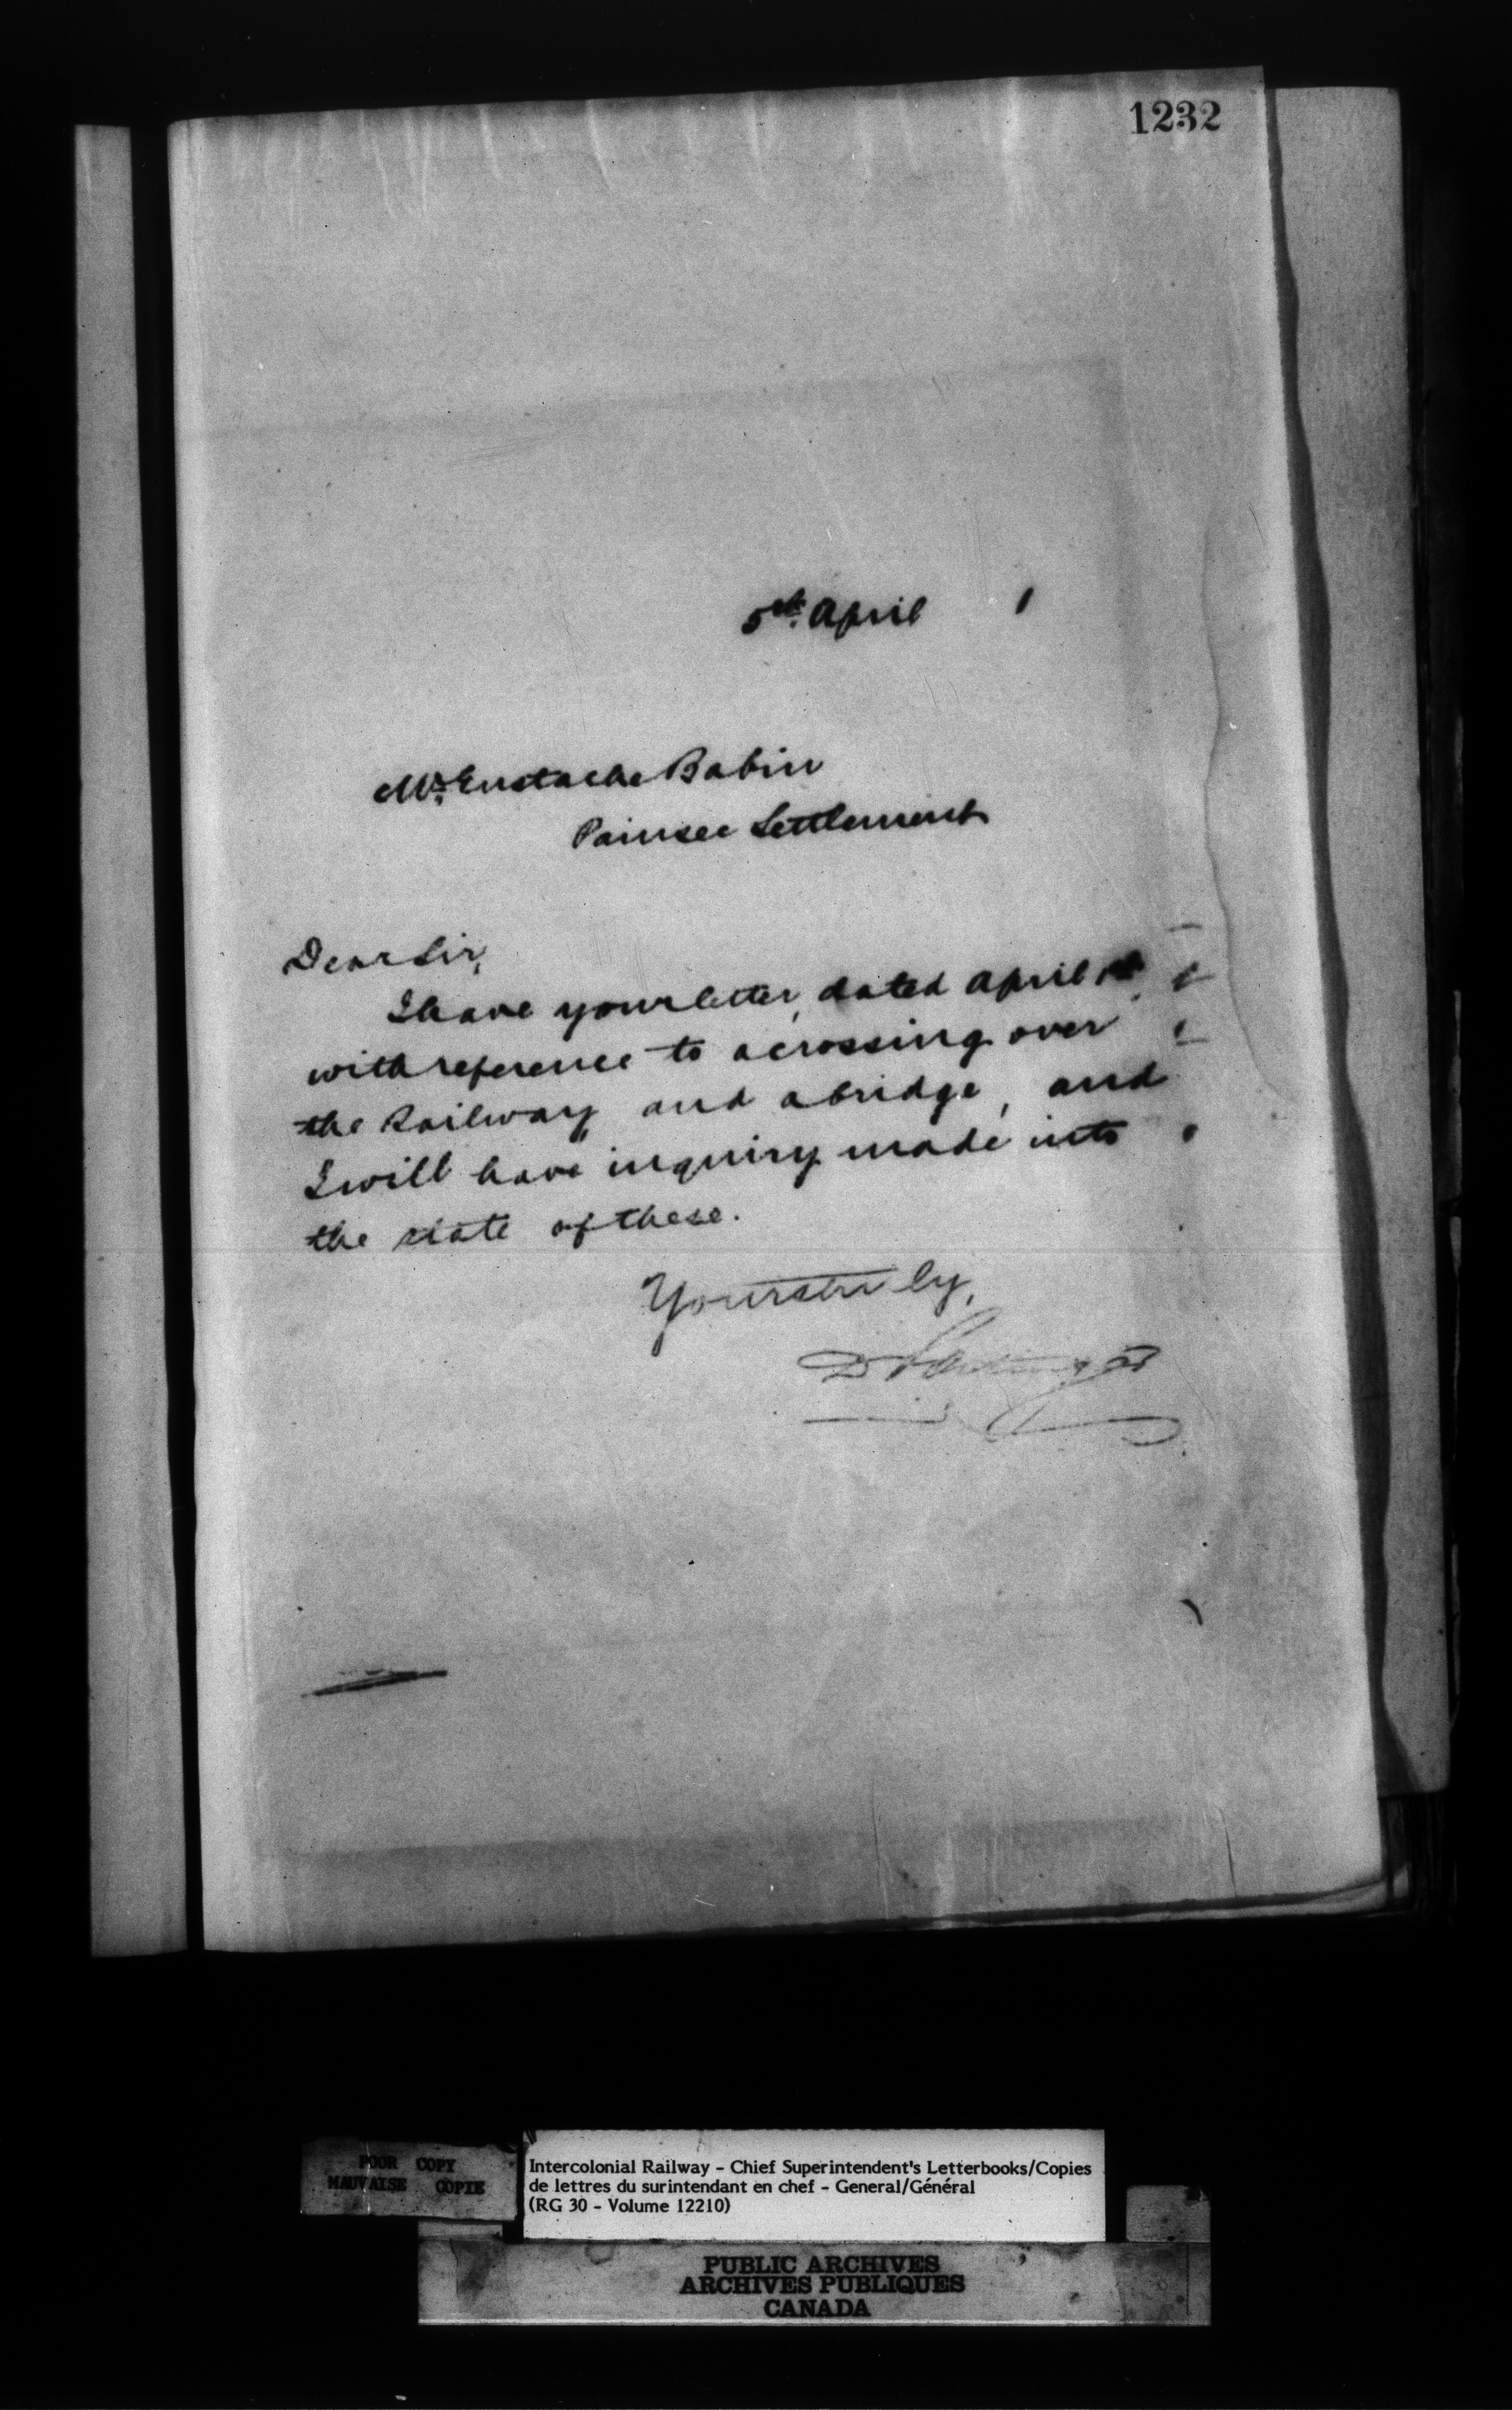 1232
5th. April 1
Mr. Eustache Babin
Painsec Settlement
Dear Sir,
I have your letter, dated April
with reference to a crossing over
the Railway and a bridge, and
I will have inquiry made into
the state of these.
Yours truly,
D Pottinger
POOR COPY
MAUVAISE COPIE
Intercolonial Railway - Chief Superintendent's Letterbooks/Copies
de lettres du surintendant en chef - General/Général
(RG 30 - Volume 12210)
PUBLIC ARCHIVES
ARCHIVES PUBLIQUES
CANADA